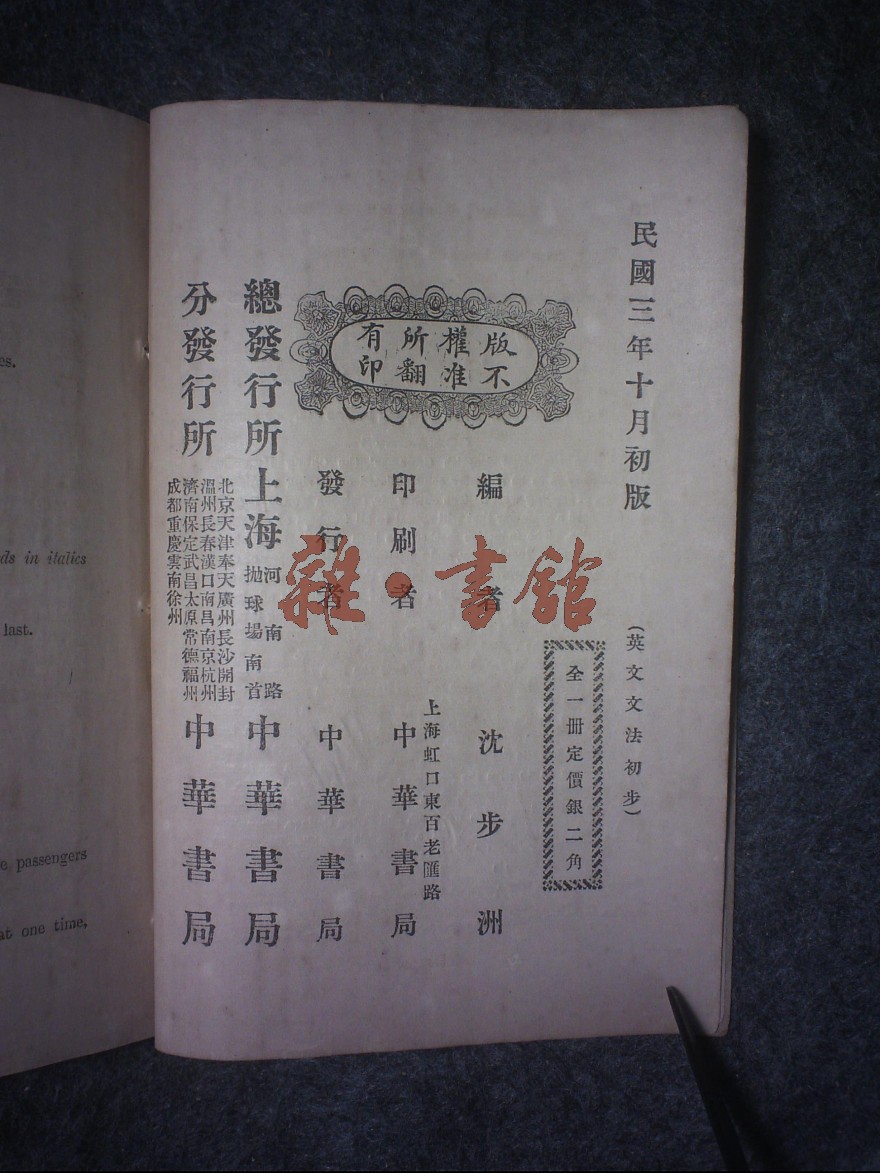 民國三年十月初版
(英文文法初步)
全一冊定價銀二角
版權所有
不准翻印
編者 沈步洲
印刷者 上海虹口東百老匯路 中華書局
發行者 中華書局
總發行所 上海 河南路 拋球場南首 中華書局
分發行所
北京天津奉天廣州長沙開封
溫州長春漢口南昌南京杭州
濟南保定武昌太原常德福州
成都重慶雲南徐州
中華書局
雜·書館
es.
ds in italics
last.
e passengers
at one time,